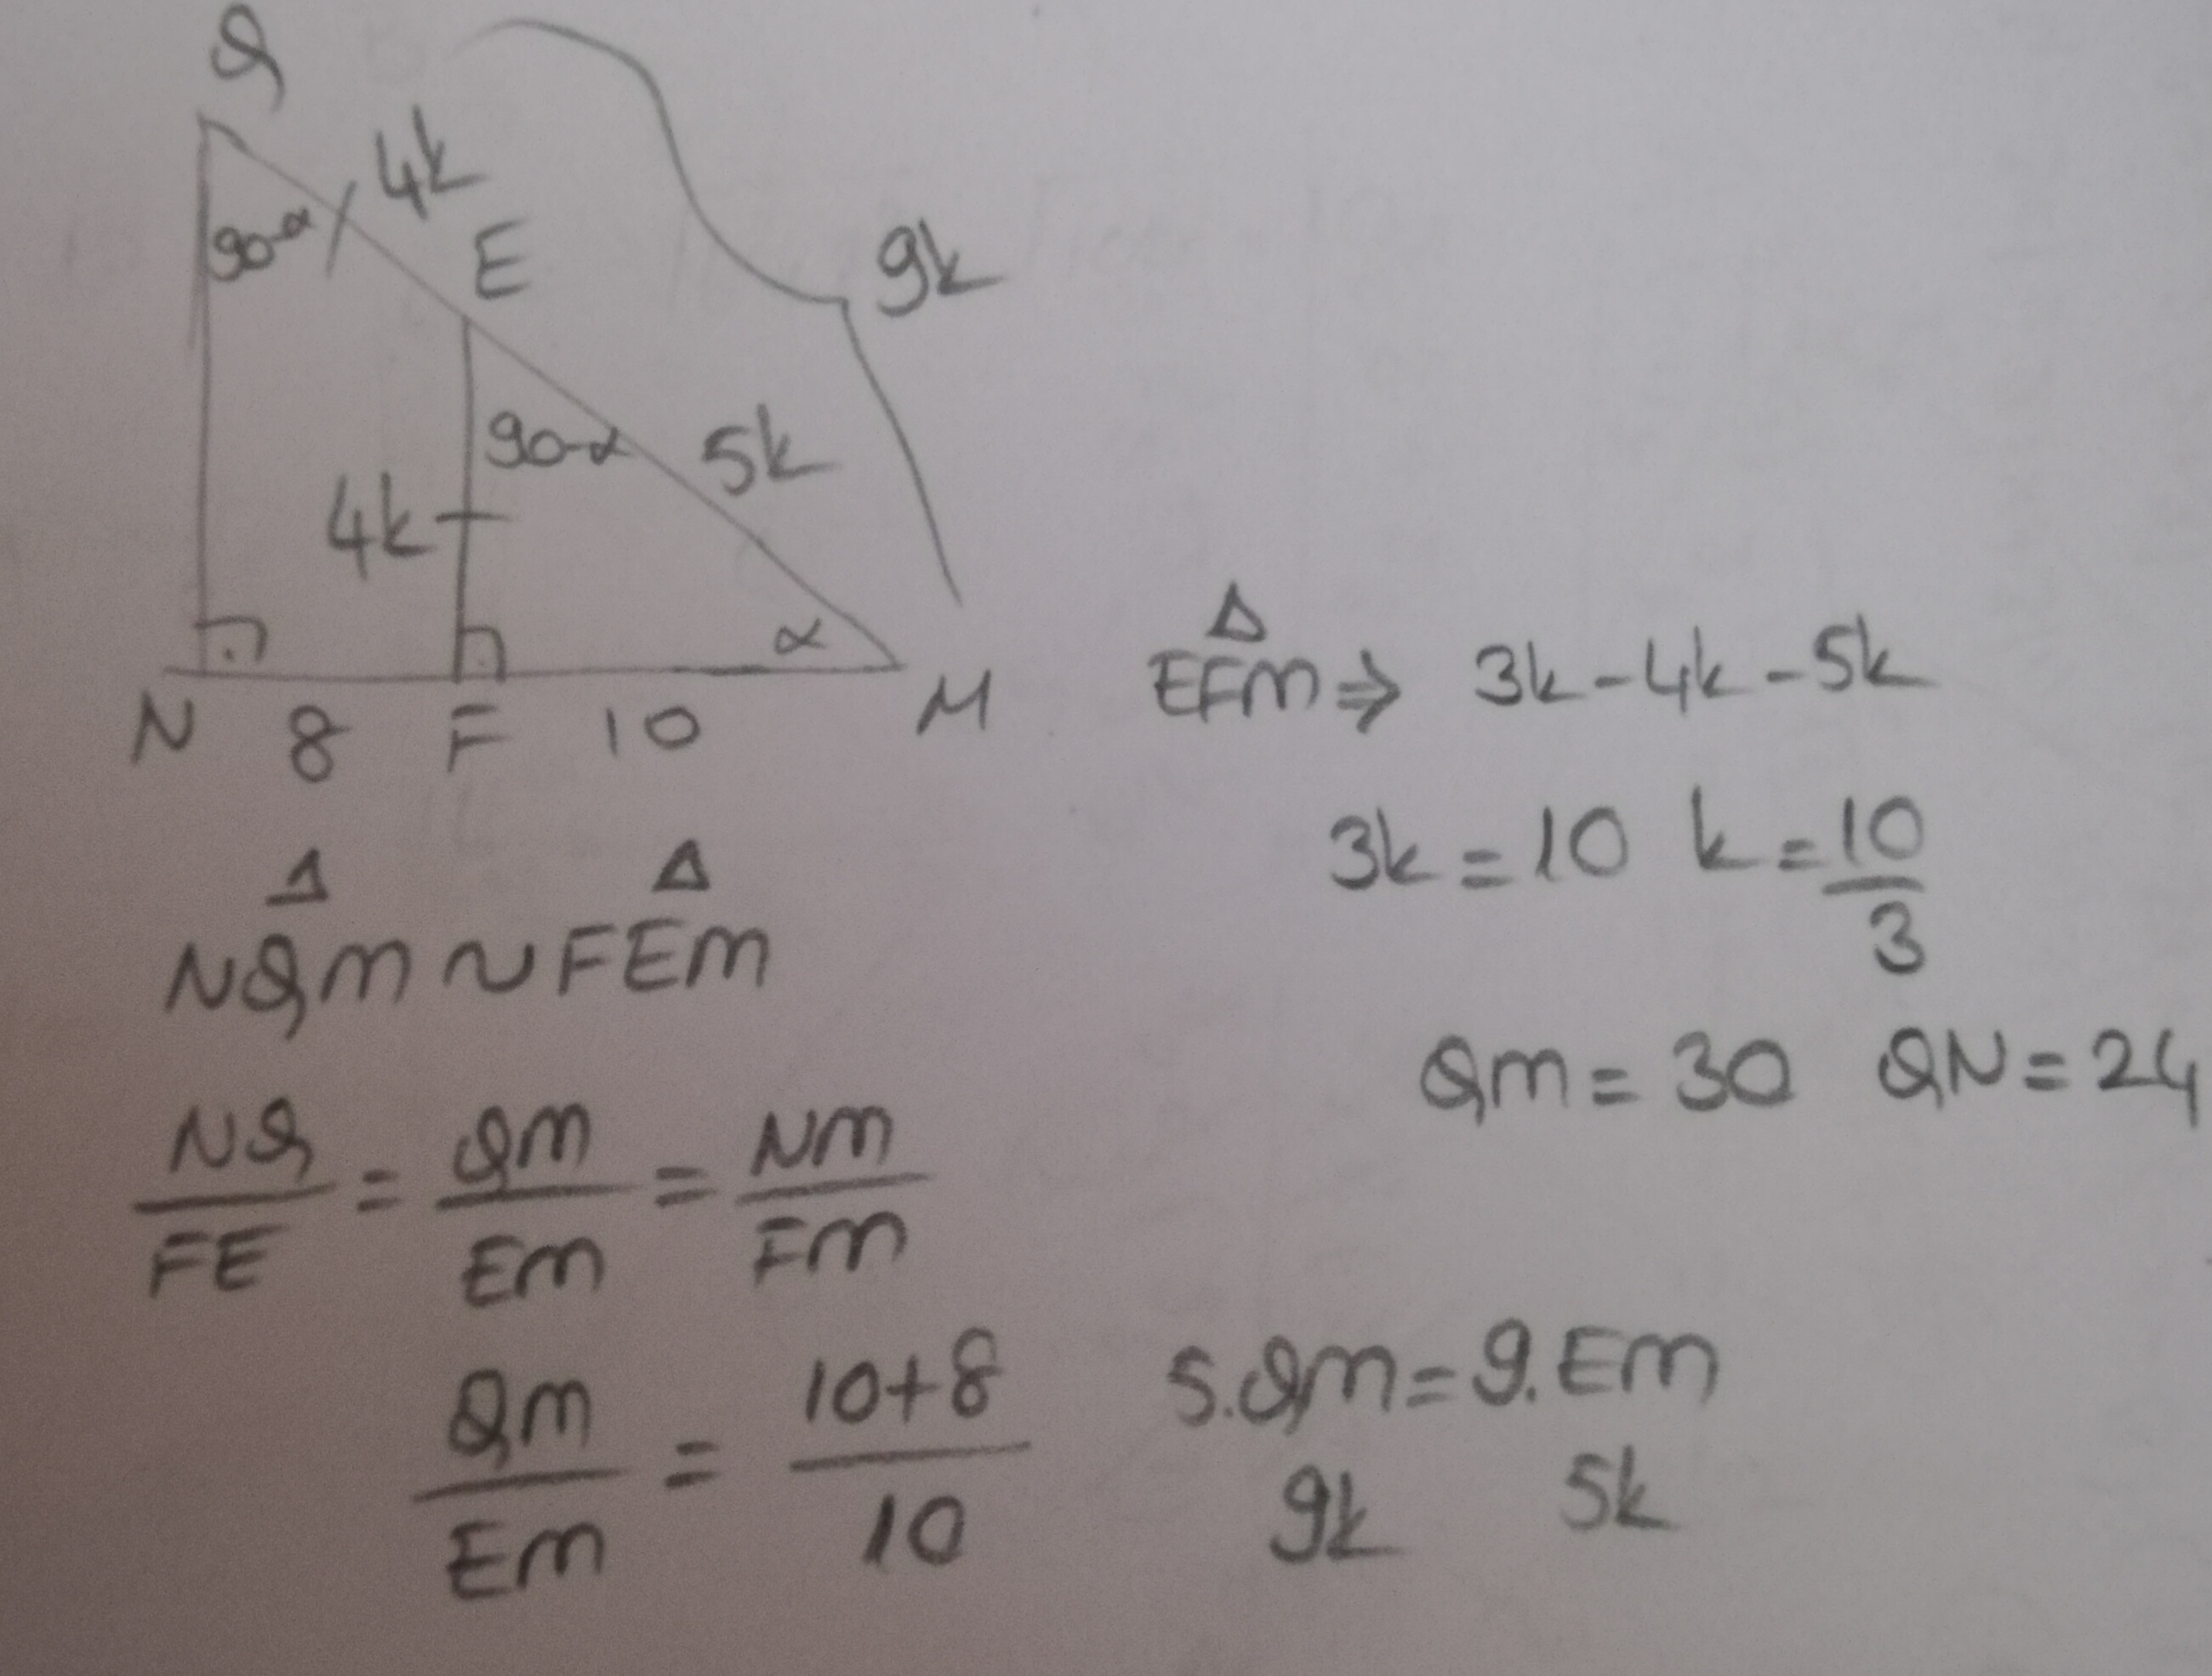 Q
4k
90-α
E
9k
90-α
5k
4k
α
N 8 F 10 M
Δ
EFM ⇒ 3k-4k-5k
3k=10 k=10/3
Δ Δ
NQM ~ FEM
QM=30 QN=24
NQ/FE = QM/EM = NM/FM
QM/EM = 10+8/10
5.QM=9.EM
9k 5k